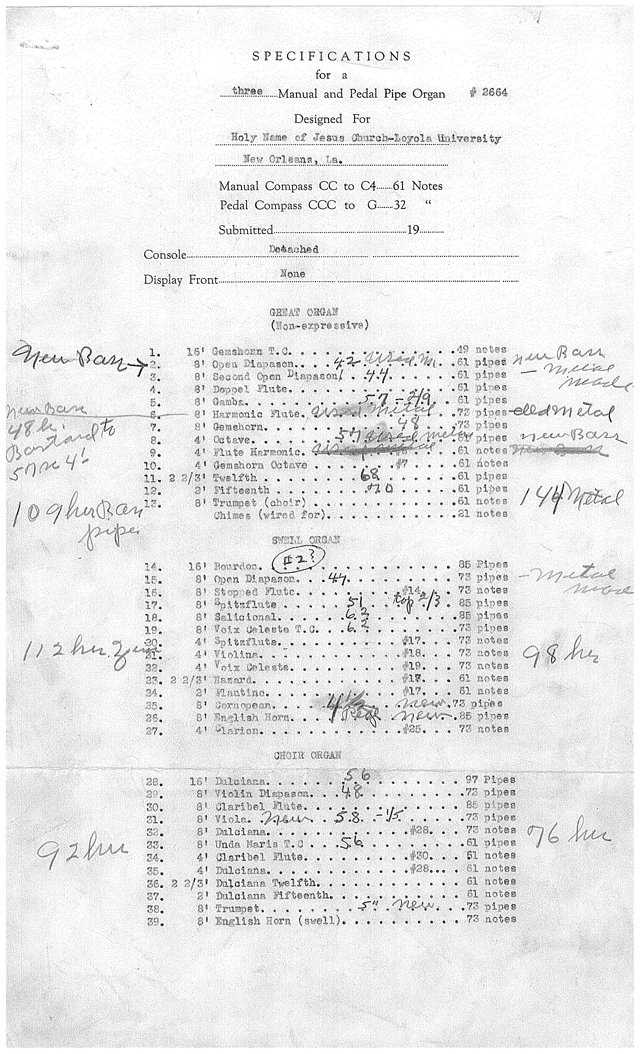 SPECIFICATIONS
for a
three Manual and Pedal Pipe Organ # 2664
Designed For
Holy Name of Jesus Church-Loyola University
New Orleans, La.
Manual Compass CC to C4 61 Notes
Pedal Compass CCC to G 32 "
Submitted 19
Console Detached
Display Front None
GREAT ORGAN
(Non-expressive)
1. 16' Gemshorn T.C. 49 notes
New Bass → 2. 8' Open Diapason 42 61 pipes New Bass
3. 8' Second Open Diapason 44 61 pipes - Metal
4. 8' Doppel Flute 61 pipes
5. 8' Gamba 57 - 2/9 61 pipes
New Bass 6. 8' Harmonic Flute Metal 73 pipes old Metal
48 hr. 7. 8' Gemshorn 48 73 pipes
8. 4' Octave 57 61 pipes New Bass
9. 4' Flute Harmonic 61 notes
57 4' 10. 4' Gemshorn Octave #7 61 notes
11. 2 2/3' Twelfth 68 61 pipes
12. 2' Fifteenth 70 61 pipes
13. 8' Trumpet (choir) 61 notes 144 Metal
Chimes (wired for) 21 notes
109 hr Bass
pipes
SWELL ORGAN
14. 16' Bourdon #2? 85 Pipes
15. 8' Open Diapason 44 73 pipes - Metal
16. 8' Stopped Flute #14 73 notes
17. 8' Spitzflute 51 top 2/3 85 pipes
18. 8' Salicional 62 85 pipes
19. 8' Voix Celeste T.C. 62 73 pipes
20. 4' Spitzflute #17. 73 notes
112 hr. 21. 4' Violina #18. 73 notes 98 hr
22. 4' Voix Celeste #19. 73 notes
23. 2 2/3' Nazard #17 61 notes
24. 2' Flautino #17. 61 notes
25. 8' Cornopean 4½ new 73 pipes
26. 8' English Horn new 85 pipes
27. 4' Clarion #25. 73 notes
CHOIR ORGAN
28. 16' Dulciana 56 97 Pipes
29. 8' Violin Diapason 48 73 pipes
30. 8' Claribel Flute 85 pipes
31. 8' Viola new 58 - 1/5 73 pipes
32. 8' Dulciana #28 73 notes
92 hr 33. 8' Unda Maris T.C 56 61 pipes 76 hr
34. 4' Claribel Flute #30 61 notes
35. 4' Dulciana #28 61 notes
36. 2 2/3' Dulciana Twelfth 61 notes
37. 2' Dulciana Fifteenth 61 notes
38. 8' Trumpet 5" new 73 pipes
39. 8' English Horn (swell) 73 notes